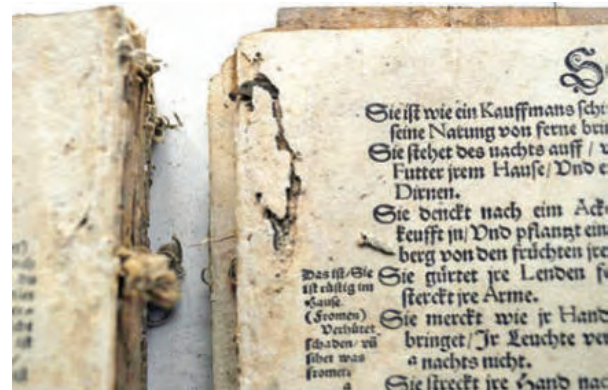 Sie ist wie ein Kauffmans
seine Narung von ferne
Sie stehet des nachts auff /
Futter jrem Hause / Vnd
Dirnen.
Sie denckt nach eim
keufft jn / Vnd pflantzt
berg von den früchten
Sie gürtet jre Lenden
sterckt jre Arme.
Sie merckt wie jr
bringet / Jr Leuchte
a nachts nicht.
Sie streckt jre Hand
Das ist / Sie
ist rüstig im
Hause.
(Fromen)
Verhütet
schaden / vñ
sihet was
fromet.
a